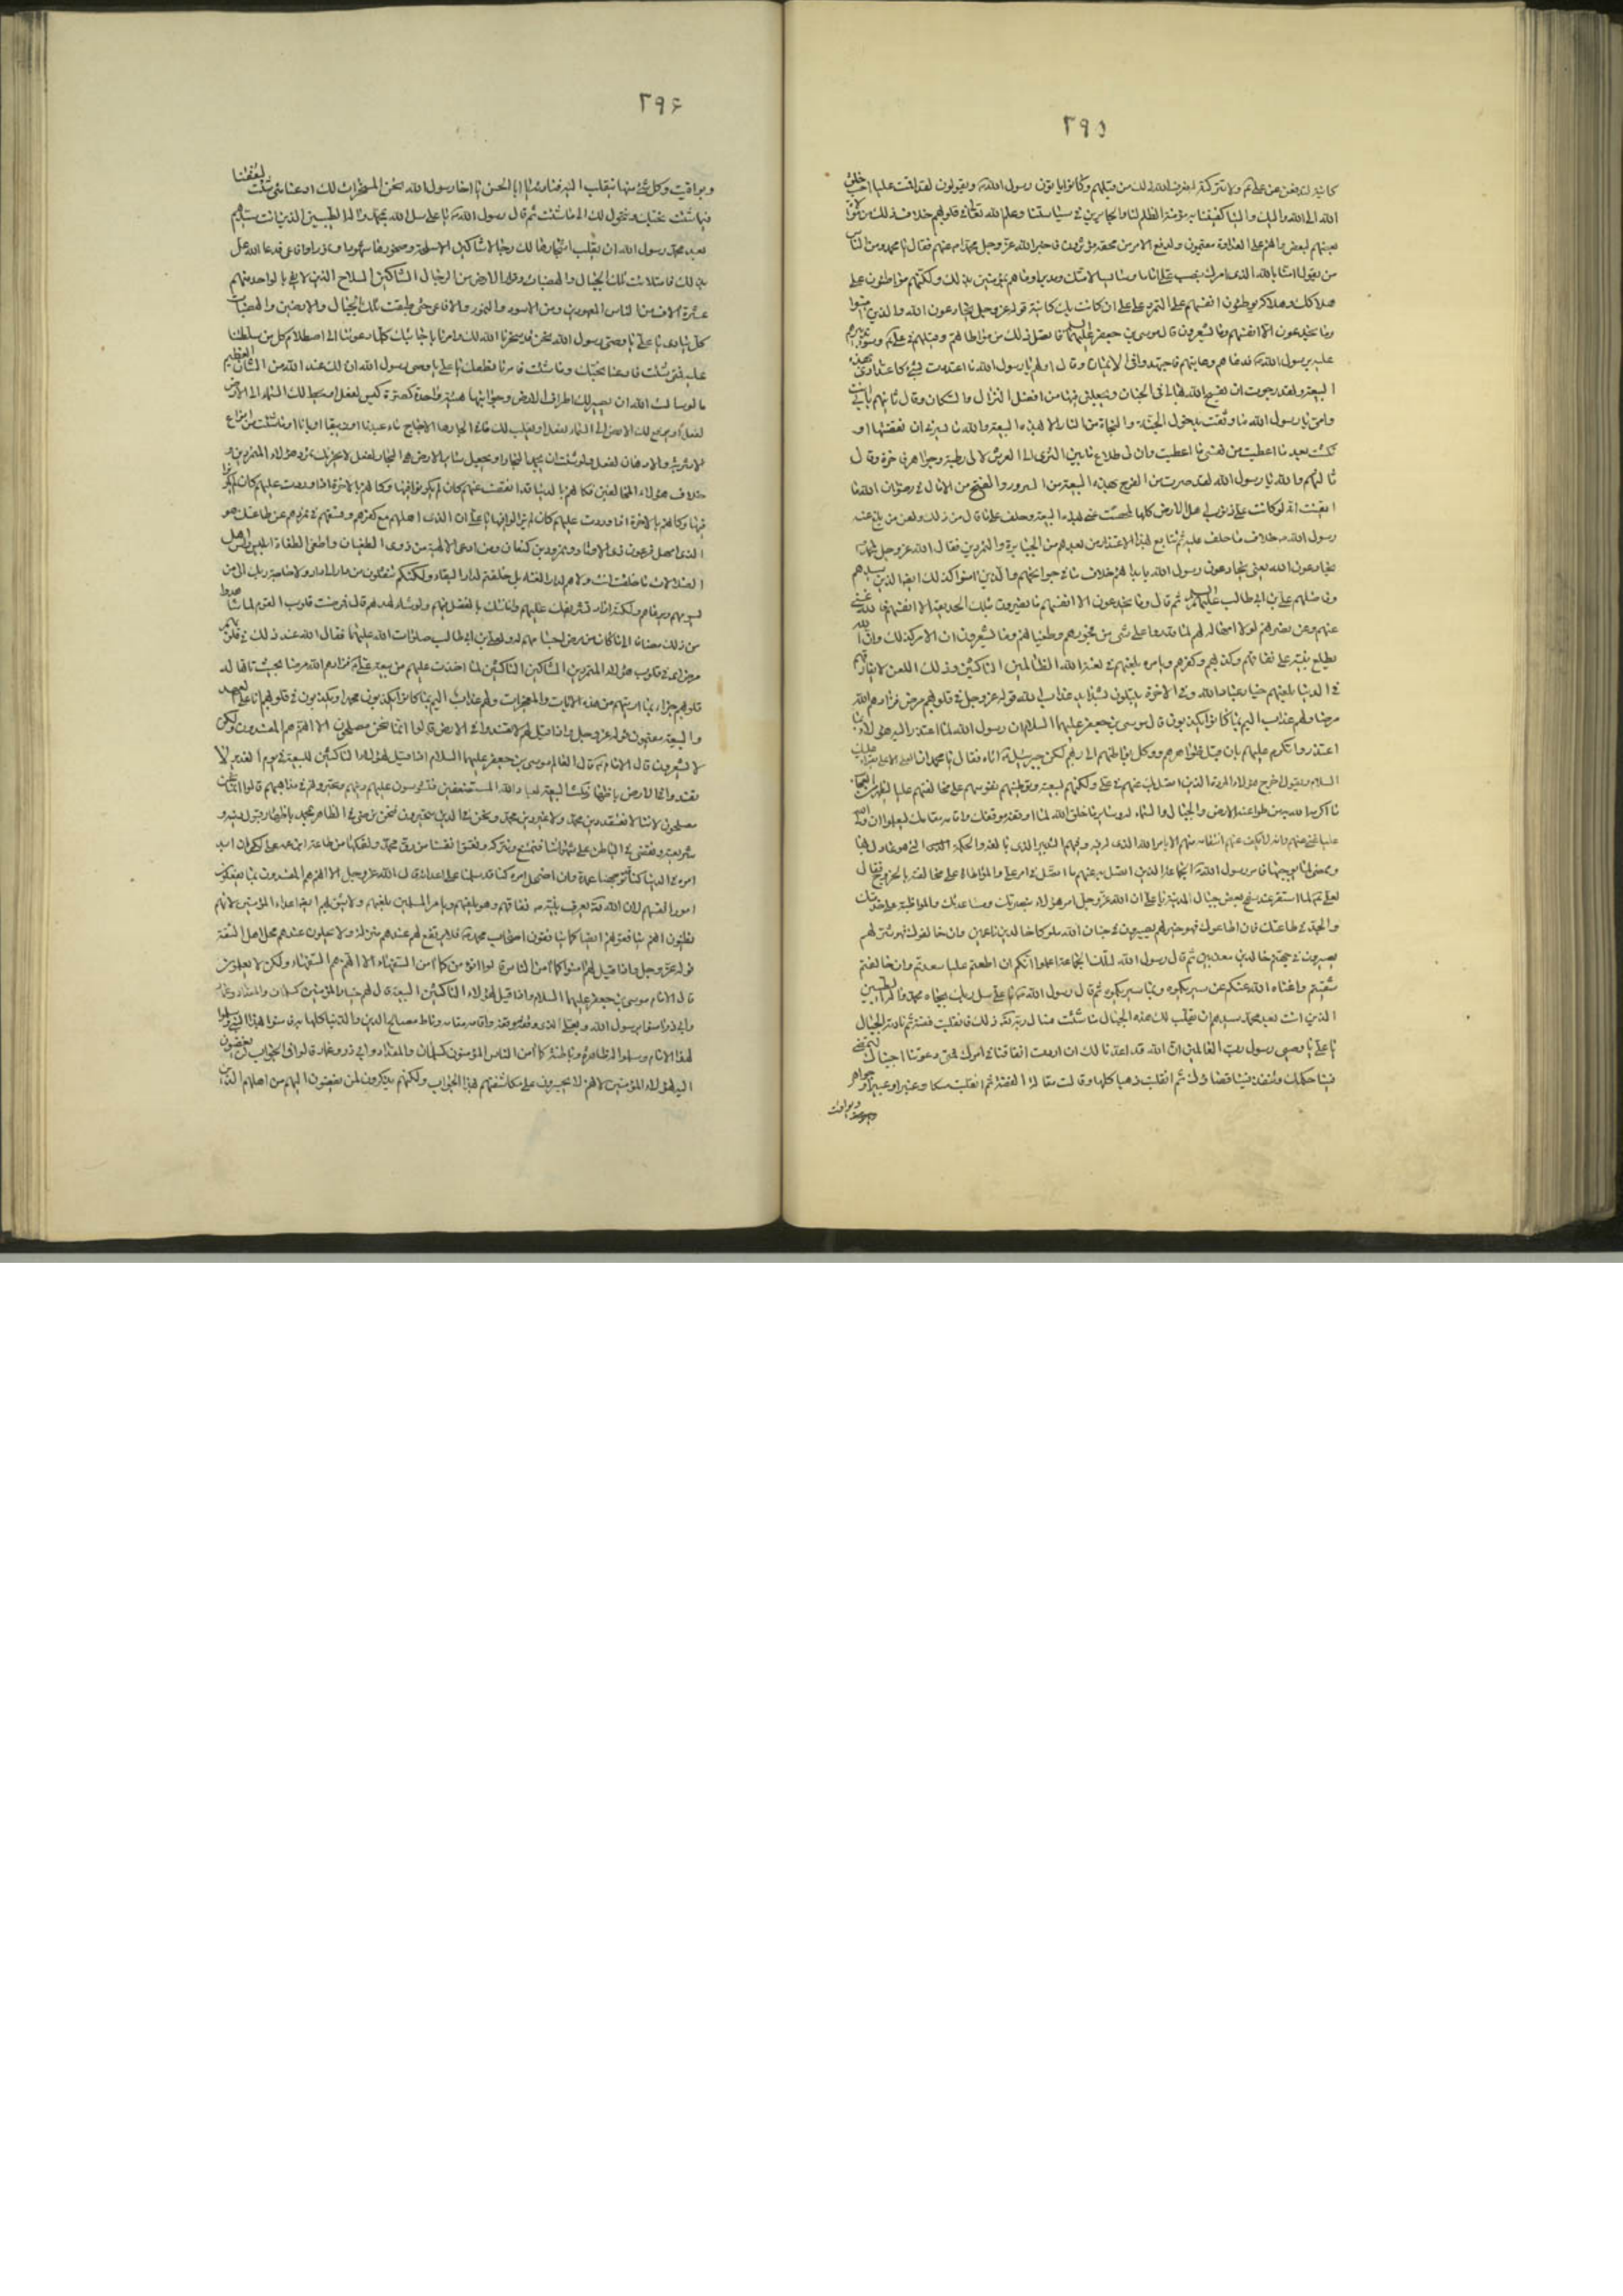 ٢٩٥
كائنة ليدفعن عن علي ولا يتركونه
الله الى الله واليك والينا كفيتنا به مؤنة الظلم لنا والجائرين في سياستنا وعلم الله تعالى في قلوبهم خلاف ذلك
بعضهم لبعض على العداوة مقيمون ولدفع الامر عن محقه مؤثرون فاخبر الله عز وجل محمدا عنهم فقال يا محمد ومن الناس
من يقول امنا بالله الذي امرك بنصب علي اماما وسائسا لامتك ومدبرا وما هم بمؤمنين بذلك ولكنهم مواطئون على
هلاكك وهلاكه يوطنون انفسهم على التمرد على علي ان كانت بك كائنة قوله عز وجل يخادعون الله والذين امنوا
وما يخدعون الا انفسهم وما يشعرون قال موسى بن جعفر عليهما السلام فاتصل ذلك من مواطاتهم وقيلهم في علي وسوء تدبيرهم
عليه برسول الله فدعاهم وعاتبهم فاجتهدوا في الايمان وقال اولهم يا رسول الله ما اعتددت بشيء كاعتدادي بهذه
البيعة ولقد رجوت ان يفسح الله بها لي في الجنان ويجعلني فيها من افضل النزال والسكان وقال ثانيهم بابي انت
وامي يا رسول الله ما وثقت بدخول الجنة والنجاة من النار الا بهذه البيعة والله ما يسرني ان نقضتها او
نكثت بعد ما اعطيت من نفسي ما اعطيت وان لي طلاع ما بين الثرى الى العرش لالي رطبة وجواهر فاخرة وقال
ثالثهم والله يا رسول الله لقد صرت من الفرح بهذه البيعة من السرور والفتح من الامال في رضوان الله ما
ايقنت انه لو كانت علي ذنوب اهل الارض كلها لمحصت عني بهذه البيعة وحلف على ما قال من ذلك ولعن من بلغ عنه
رسول الله خلاف ما حلف عليه ثم تتابع بهذا الاعتذار من بعدهم من الجبابرة والمتمردين فقال الله عز وجل لمحمد
يخادعون الله يعني يخادعون رسول الله بابدائهم خلاف ما في جوانحهم والذين امنوا كذلك ايضا الذين سيدهم
وفاضلهم علي بن ابي طالب عليهم السلام ثم قال وما يخدعون الا انفسهم ما يضرون بتلك الخديعة الا انفسهم فان الله غني
عنهم وعن نصرتهم لولا امهاله لهم لما قدروا على شيء من فجورهم وطغيانهم وما يشعرون ان الامر كذلك وان الله
يطلع نبيه على نفاقهم وكذبهم وكفرهم ويامره بلعنهم في لعنة الله الظالمين الناكثين وذلك اللعن لا يفارقهم
في الدنيا يلعنهم خيار عباد الله وفي الاخرة يبتلون بشدايد عذاب الله قوله عز وجل في قلوبهم مرض فزادهم الله
مرضا ولهم عذاب اليم بما كانوا يكذبون قال موسى بن جعفر عليهما السلام ان رسول الله لما اعتذر اليه هؤلاء بما
اعتذروا تكرم عليهم بان قبل ظواهرهم ووكل بواطنهم الى ربهم لكن جبرئيل اتاه فقال يا محمد ان العلي الاعلى يقرا عليك
السلام ويقول اخرج هؤلاء المردة الذين اتصل بك عنهم في علي ونكثهم لبيعته وتوطينهم نفوسهم على مخالفتهم عليا ليظهر من العجائب
ما اكرمه الله به من طواعية الارض والجبال والسماء له وسائر ما خلق الله لما اوقفه موقفك واقامه مقامك ليعلموا ان ولي الله
عليا غني عنهم وانه لا يكف عنهم انتقامه منهم الا بامر الله الذي له فيه وفيهم التدبير الذي بالغه والحكمة التي هو عامل بها
وممض لما يوجبها فامر رسول الله الجماعة الذين اتصل به عنهم ما اتصل في امر علي والمواطاة على مخالفته بالخروج فقال
لعلي لما استقر عند سفح بعض جبال المدينة يا علي ان الله عز وجل امر هؤلاء بنصرتك ومساعدتك والمواظبة على خدمتك
والجد في طاعتك فان اطاعوك فهو خير لهم يصيرون في جنان الله ملوكا خالدين ناعمين وان خالفوك فهو شر لهم
يصيرون في جهنم خالدين معذبين ثم قال رسول الله لتلك الجماعة اعلموا انكم ان اطعتم عليا سعدتم وان خالفتم
شقيتم واغناه الله عنكم عن سيريكموه وبما سيريكموه ثم قال رسول الله يا علي سل ربك بجاه محمد واله الطيبين
الذين انت بعد محمد سيدهم ان يقلب لك هذه الجبال ما شئت فسال ربه ذلك فانقلبت فضة ثم نادته الجبال
يا علي يا وصي رسول رب العالمين ان الله قد اعدنا لك ان اردت انفاقنا في امرك فمتى دعوتنا اجبناك لتمضي
فينا حكمك وتنفذ فينا قضاؤك ثم انقلبت ذهبا كلها وقالت مقالة الفضة ثم انقلبت مسكا وعنبرا وعبيرا وجواهر
ويواقيت
٢٩٤
ويواقيت وكل شيء منها ينقلب اليه فنادته يا ابا الحسن يا اخا رسول الله نحن المسخرات لك ادعنا متى شئت لتنفقنا
فيما شئت نجبك ونتحول لك الى ما شئت ثم قال رسول الله يا علي سل الله بمحمد واله الطيبين الذين انت سيدهم
بعد محمد رسول الله ان يقلب اشجارها لك رجالا شاكين الاسلحة وصخورها اسودا ونمورا وافاعي فدعا الله علي
بذلك فامتلات تلك الجبال والهضبات وقرار الارض من الرجال الشاكين السلاح الذين لا يفي بالواحد منهم
عشرة الاف من الناس المعهودين ومن الاسود والنمور والافاعي حتى طبقت تلك الجبال والارضين والهضبات
كل ينادي يا علي يا وصي رسول الله نحن قد سخرنا الله لك وامرنا باجابتك كلما دعوتنا الى اصطلام كل من سلطتنا
عليه فمتى شئت فادعنا نجبك وما شئت فامرنا به نطعك يا علي يا وصي رسول الله ان لك عند الله من الشان العظيم
ما لو سالت الله ان يصير لك اطراف الارض وجوانبها هيئة واحدة كصرة كيس لفعل او يحط لك السماء الى الارض
لفعل او يرفع لك الارض الى السماء لفعل او يقلب لك ما في بحارها الاجاج ماء عذبا او زيبقا او بانا او ما شئت من انواع
الاشربة والادهان لفعل ولو شئت ان يجمد البحار او يجعل سائر الارض هي البحار لفعل لا يحزنك تمرد هؤلاء المتمردين و
خلاف هؤلاء المخالفين فكانهم بالدنيا قد انقضت عنهم كان لم يكونوا فيها وكانهم بالاخرة اذا وردت عليهم كان لم يكونوا
فيها وكانهم بالاخرة اذا وردت عليهم كان لم يزالوا فيها يا علي ان الذي امهلهم مع كفرهم وفسقهم في تمردهم عن طاعتك هو
الذي امهل فرعون ذي الاوتاد ونمرود بن كنعان ومن ادعى الالهية من ذوي الطغيان واطغى الطغاة ابليس راس اهل
الضلالات ما خلقت انت ولا هم لدار الفناء بل خلقتم لدار البقاء ولكنكم تنتقلون من دار الى دار ولا حاجة لربك الى من
يسوسهم ويرعاهم ولكنه اراد تشريفك عليهم وابانتك بالفضل فيهم ولو شاء لهداهم قال فمرضت قلوب القوم لما شاهدوا
من ذلك مضافا الى ما كان من مرض اجسامهم له ولعلي بن ابي طالب صلوات الله عليهما فقال الله عند ذلك في قلوبهم
مرض اي في قلوب هؤلاء المتمردين الشاكين الناكثين لما اخذت عليهم من بيعة علي فزادهم الله مرضا بحيث تاهت له
قلوبهم جزاء بما اريتهم من هذه الايات والمعجزات ولهم عذاب اليم بما كانوا يكذبون محمدا ويكذبون في قولهم انا على العهد
والبيعة مقيمون قوله عز وجل واذا قيل لهم لا تفسدوا في الارض قالوا انما نحن مصلحون الا انهم هم المفسدون ولكن
لا يشعرون قال الامام قال العالم موسى بن جعفر عليهما السلام اذا قيل لهؤلاء الناكثين للبيعة في يوم الغدير لا
تفسدوا في الارض باظهار نكث البيعة لعباد الله المستضعفين فتشوشون عليهم دينهم وتحيرونهم في مذاهبهم قالوا انما نحن
مصلحون لاننا لا نعتقد دين محمد ولا غير دين محمد ونحن في الدين متحيرون فنحن نرضى في الظاهر محمدا باظهار قبول دينه و
شريعته ونقضي في الباطن على شهواتنا فنتمتع ونتركه ونعتق انفسنا من رق محمد ونفكها من طاعة ابن عمه علي لكي ان اديل
امره في الدنيا كنا قد توجهنا عنده وان اضمحل امره كنا قد سلمنا على اعدائه قال الله عز وجل الا انهم هم المفسدون بما يفعلون
امور انفسهم لان الله يعرف نبيه نفاقهم وهو يلعنهم ويامر المسلمين بلعنهم ولا يثق بهم ايضا اعداء المؤمنين لانهم
يظنون انهم ينافقونهم ايضا كما ينافقون اصحاب محمد فلا يرفع لهم عندهم منزلة ولا يحلون عندهم محل اهل الثقة
قوله عز وجل واذا قيل لهم امنوا كما امن الناس قالوا انؤمن كما امن السفهاء الا انهم هم السفهاء ولكن لا يعلمون
قال الامام موسى بن جعفر عليهما السلام واذا قيل لهؤلاء الناكثين البيعة قال لهم خيار المؤمنين كسلمان والمقداد وعمار
وابي ذر امنوا برسول الله وبعلي الذي وقفه موقفه واقامه مقامه وناط مصالح الدين والدنيا كلها به فامنوا بهذا النبي وسلموا
لهذا الامام وسلموا له ظاهره وباطنه كما امن الناس المؤمنون كسلمان والمقداد وابي ذر وعمار قالوا في الجواب لمن يفضون
اليه لهؤلاء المؤمنين لانهم لا يجسرون على مكاشفتهم بهذا الجواب ولكنهم يذكرون لمن يفضون اليهم من اهليهم الذين